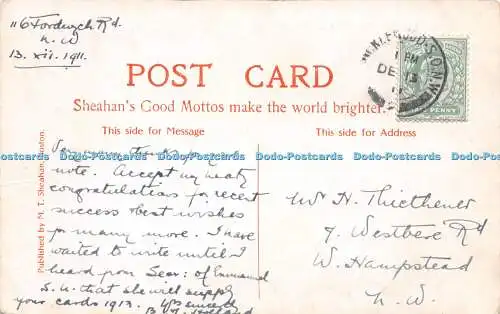 116 Fordwych Rd.
N.W
13. XII. 1911.
CRICKLEWOOD.S.O.N.W
1 PM
DE 13
11
HALFPENNY
POST CARD
Sheahan's Good Mottos make the world brighter.
This side for Message
This side for Address
Published by M. T. Sheahan, Boston.
Very many thanks for yr
note. Accept my hearty
congratulations for recent
success & best wishes
for many more. I have
waited to write until I
heard from Sec: of Emmanuel
S.U. that she will supply
your cards 1913. Yrs sincerely
Mr H. Thiethener
7. Westbere Rd
W. Hampstead
N.W.
Dodo-Postcards Dodo-Postcards Dodo-Postcards Dodo-Postcards Dodo-Postcards